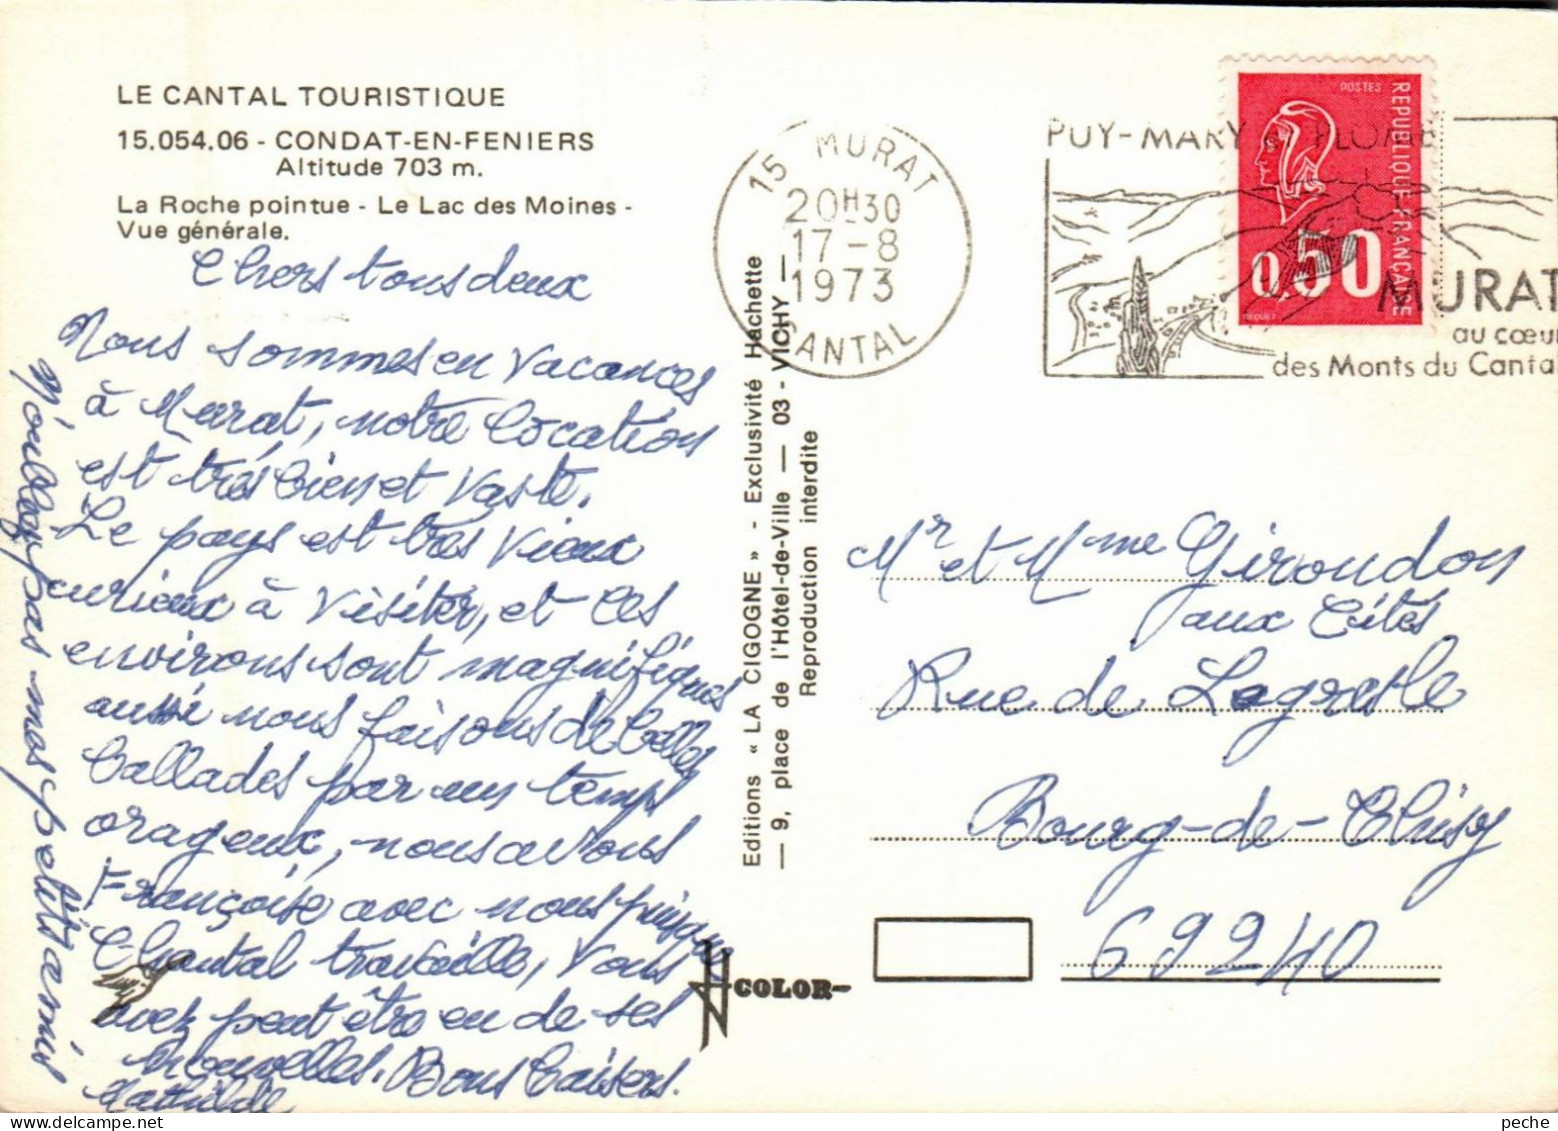 LE CANTAL TOURISTIQUE
15.054.06 - CONDAT-EN-FENIERS
Altitude 703 m.
La Roche pointue - Le Lac des Moines -
Vue générale.
Chers tous deux
Nous sommes en vacances
à Murat, notre location
est très bien et vaste.
Le pays est très vieux
curieux à visiter, et les
environs sont magnifiques
aussi nous faisons de belles
ballades par un temps
orageux, nous avons
Françoise avec nous puisque
Chantal travaille, vous
avez peut être eu de ses
nouvelles. Bons baisers.
Mathilde
N'oubliez pas nos petits amis
Editions « LA CIGOGNE » - Exclusivité Hachette
— 9, place de l'Hôtel-de-Ville — 03 - VICHY —
Reproduction interdite
COLOR
15 MURAT
20H30
17-8
1973
CANTAL
PUY-MARY PLOMB
MURAT
au cœur
des Monts du Cantal
POSTES
REPUBLIQUE FRANÇAISE
0,50
Mr et Mme Girondon
aux Cités
Rue de Lagresle
Bourg-de-Thisy
69240
peche